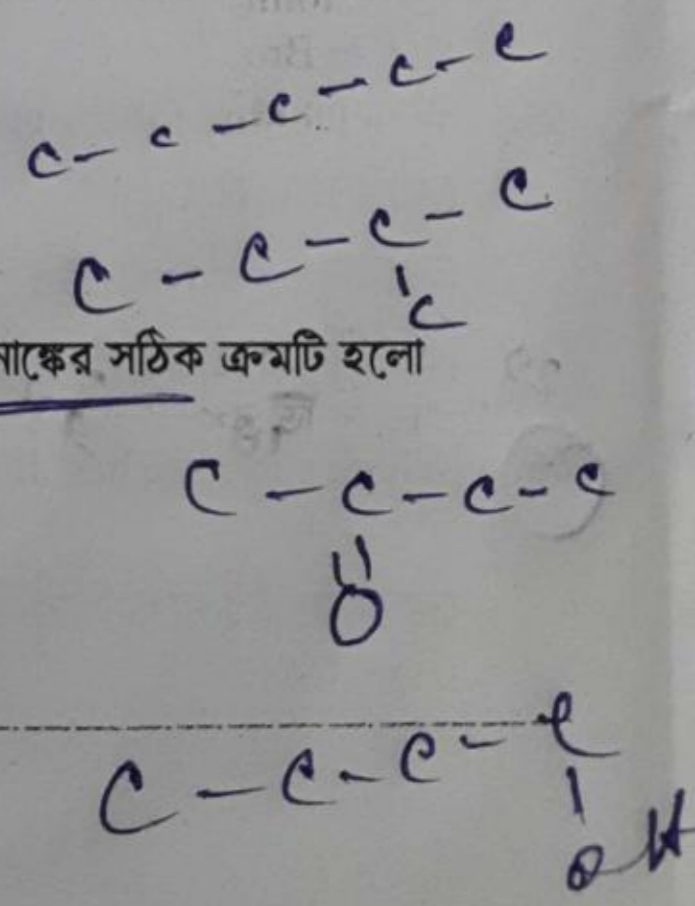 C – C – C – C – C
C – C – C – C
|
C
নাঙ্কের সঠিক ক্রমটি হলো
C – C – C – C
||
O
C – C – C – C
|
OH